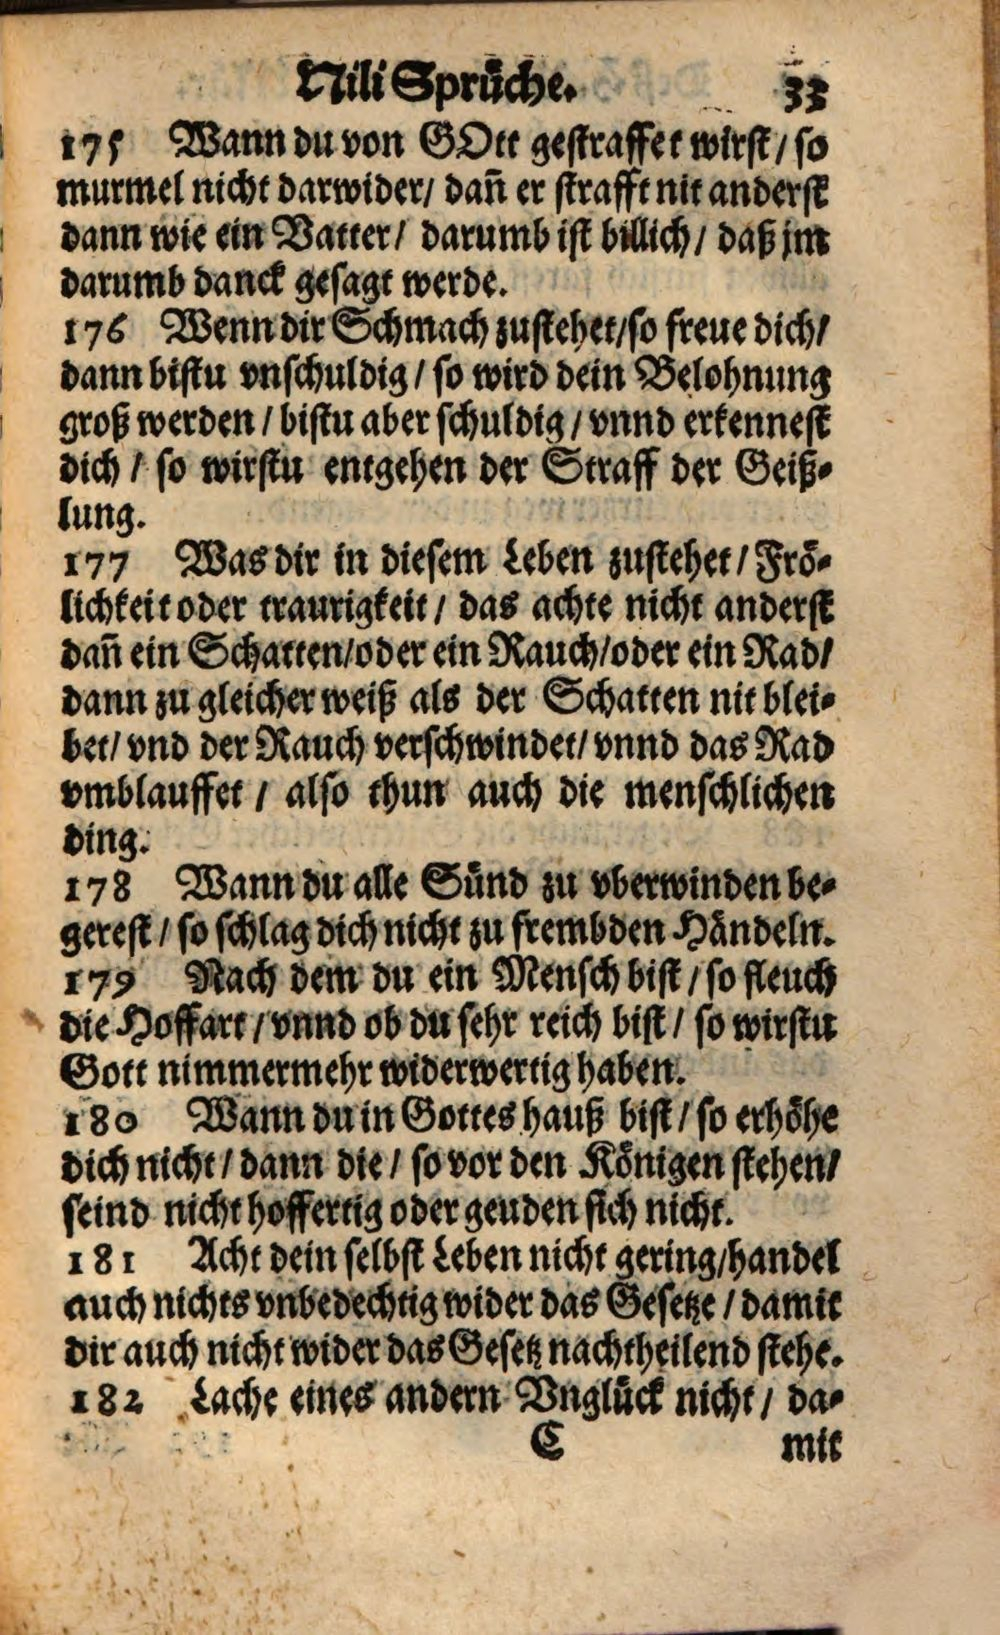 Nili Sprüche. 33
175 Wann du von GOtt gestraffet wirst / so
murmel nicht darwider / dañ er strafft nit anderst
dann wie ein Vatter / darumb ist billich / daß jm
darumb danck gesagt werde.
176 Wenn dir Schmach zustehet / so freue dich /
dann bistu vnschuldig / so wird dein Belohnung
groß werden / bistu aber schuldig / vnnd erkennest
dich / so wirstu entgehen der Straff der Geiß-
lung.
177 Was dir in diesem Leben zustehet / Frö-
lichkeit oder traurigkeit / das achte nicht anderst
dañ ein Schatten / oder ein Rauch / oder ein Rad /
dann zu gleicher weiß als der Schatten nit blei-
bet / vnd der Rauch verschwindet / vnnd das Rad
vmblauffet / also thun auch die menschlichen
ding.
178 Wann du alle Sünd zu vberwinden be-
gerest / so schlag dich nicht zu frembden Händeln.
179 Nach dem du ein Mensch bist / so fleuch
die Hoffart / vnnd ob du sehr reich bist / so wirstu
Gott nimmermehr widerwertig haben.
180 Wann du in Gottes hauß bist / so erhöhe
dich nicht / dann die / so vor den Königen stehen /
seind nicht hoffertig oder geuden sich nicht.
181 Acht dein selbst Leben nicht gering / handel
auch nichts vnbedechtig wider das Gesetze / damit
dir auch nicht wider das Gesetz nachtheilend stehe.
182 Lache eines andern Vnglück nicht / da-
C mit